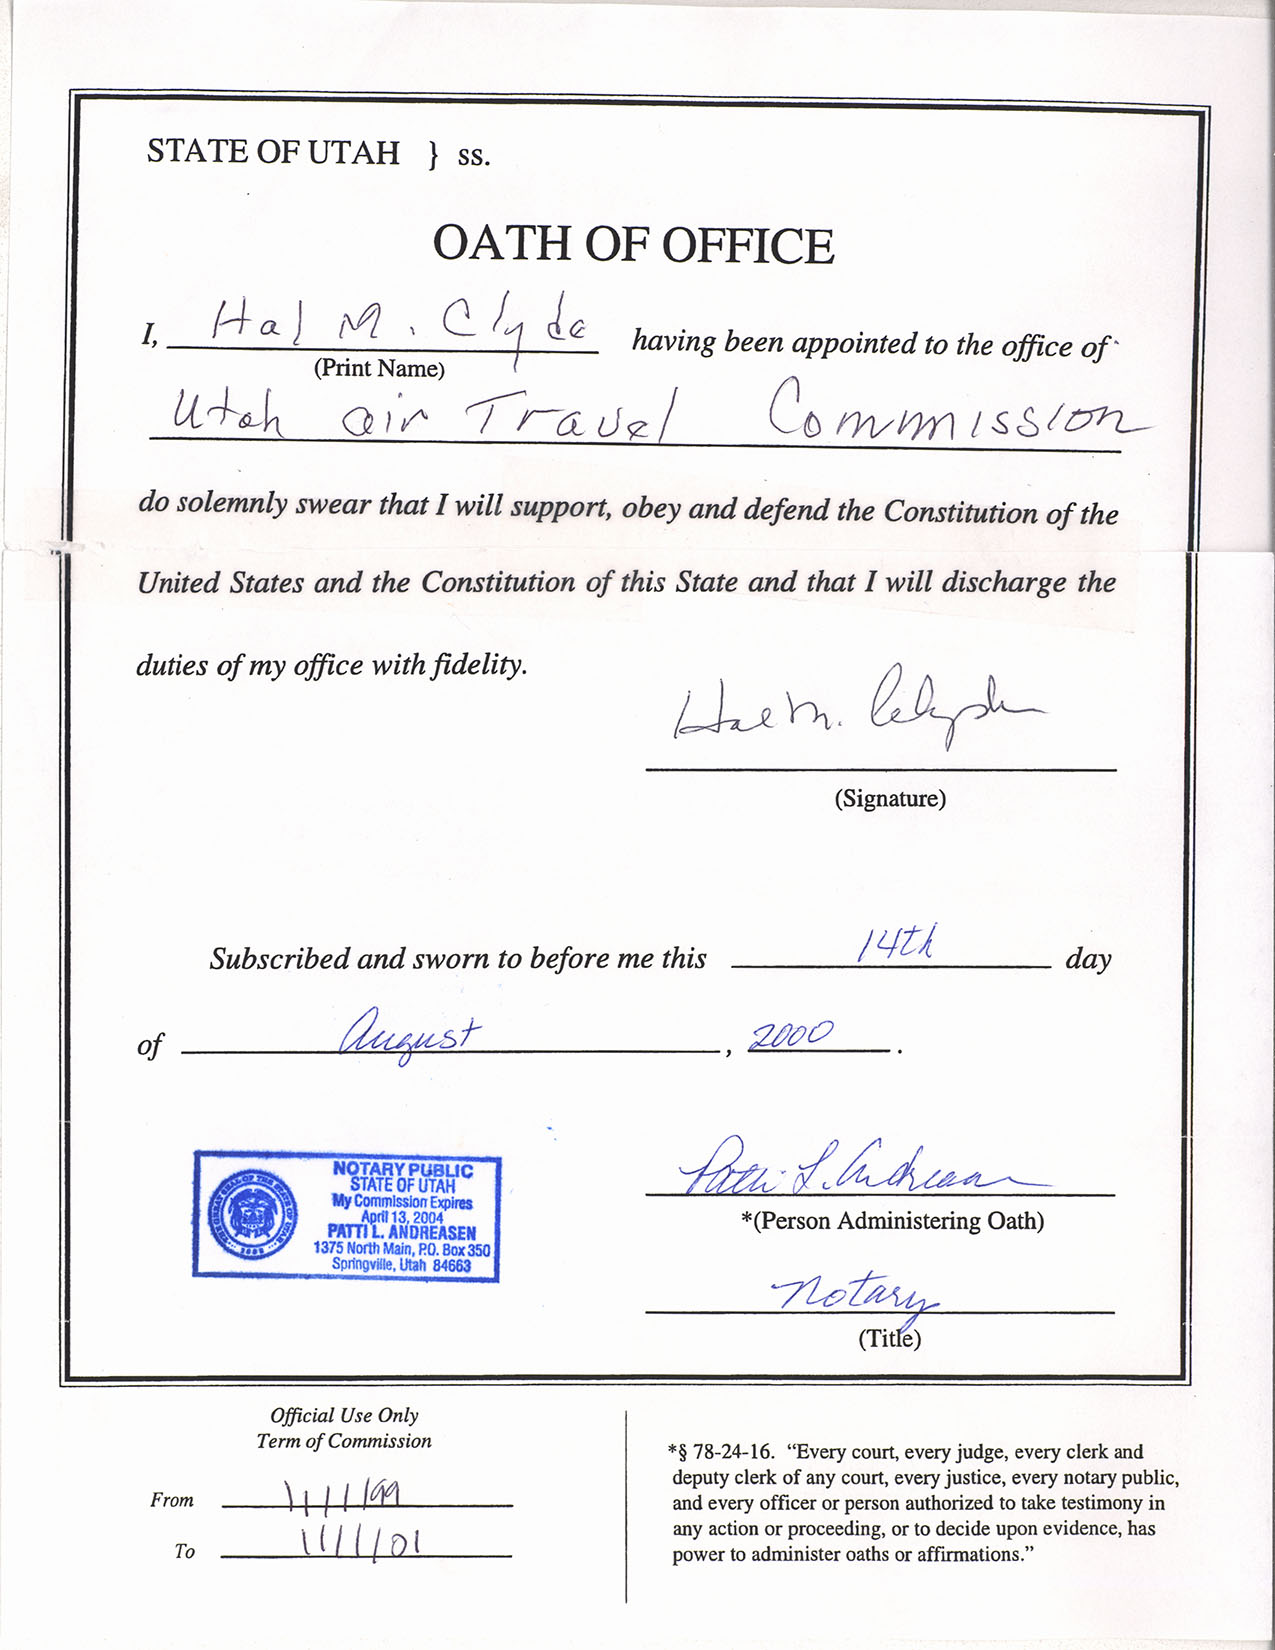 STATE OF UTAH } ss.
OATH OF OFFICE
I, Hal M. Clyde having been appointed to the office of
(Print Name)
Utah air Travel Commission
do solemnly swear that I will support, obey and defend the Constitution of the
United States and the Constitution of this State and that I will discharge the
duties of my office with fidelity.
Hal M. Clyde
(Signature)
Subscribed and sworn to before me this 14th day
of August, 2000.
NOTARY PUBLIC
STATE OF UTAH
My Commission Expires
April 13, 2004
PATTI L. ANDREASEN
1375 North Main, P.O. Box 350
Springville, Utah 84663
THE GREAT SEAL OF THE STATE OF UTAH
1896
Patti L. Andreasen
*(Person Administering Oath)
Notary
(Title)
Official Use Only
Term of Commission
From 11/1/99
To 11/1/01
*§ 78-24-16. “Every court, every judge, every clerk and
deputy clerk of any court, every justice, every notary public,
and every officer or person authorized to take testimony in
any action or proceeding, or to decide upon evidence, has
power to administer oaths or affirmations.”